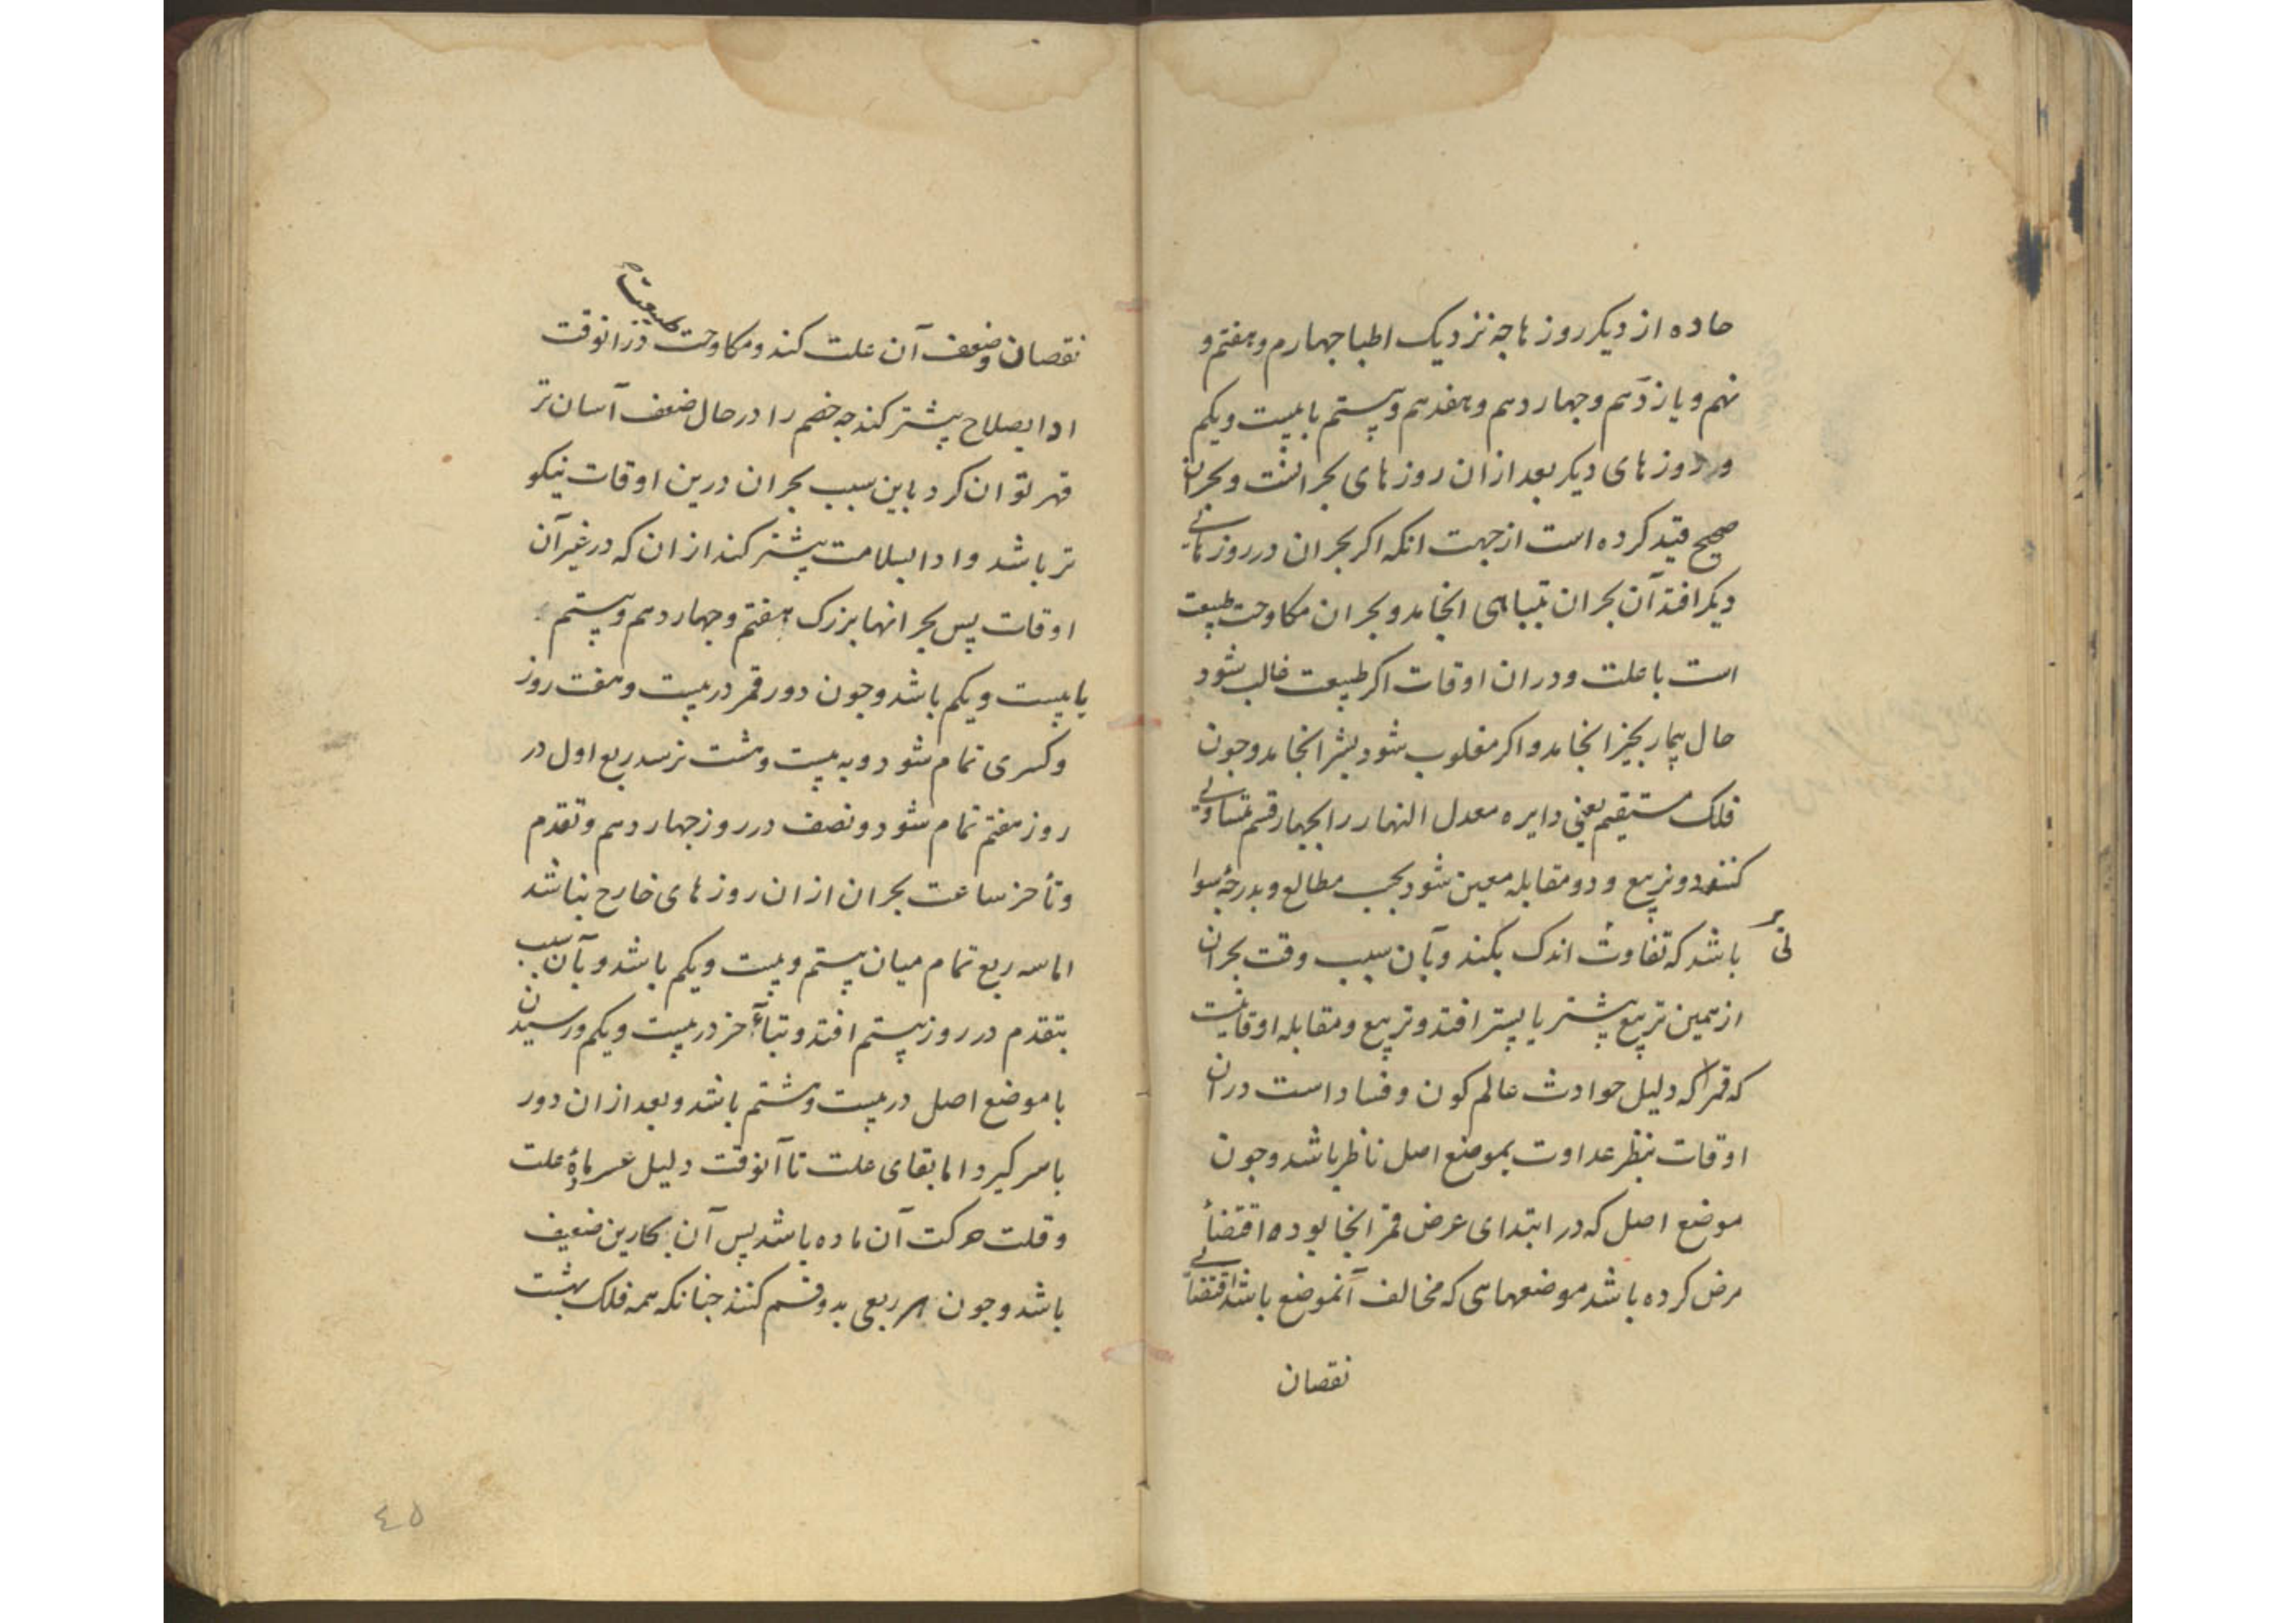 حاده از دیکر روزها جه نزدیک اطبا جهارم و هفتم و
نهم و یازدهم و جهاردهم و هفدهم و بیستم یا بیست و یکم
و روزهای دیکر بعد ازان روزهای بحرانست و بحران
صحیح قید کرده است ازجهت انکه اکر بحران در روزهائی
دیکر افتد آن بحران بتباهی انجامد و بحران مکاوحت طبیعت
است با علت و دران اوقات اکر طبیعت غالب شود
حال بیمار بخیر انجامد و اکر مغلوب شود بشر انجامد و جون
فلک مستقیم یعنی دایره معدل النهار را بجهار قسم متساوی
کنند دو تربیع و دو مقابله معین شود بحسب مطالع و بدرجه سوا
نی باشد که تفاوت اندک بکند و بآن سبب وقت بحران
ازهمین تربیع پیشتر یا پستر افتد و تربیع و مقابله اوقاتیست
که قمر را که دلیل حوادث عالم کون و فساد است دران
اوقات بنظر عداوت بموضع اصل ناظر باشد و جون
موضع اصل که در ابتدای عرض قمر انجا بوده اقتضأ
مرض کرده باشد موضعهایی که مخالف آنموضع باشد اقتضائی
نقصان
نقصان و ضعف آن علت کند و مکاوحت طبیعت درانوقت
ادا بصلاح پیشتر کند جه خصم را در حال ضعف آسان تر
قهر توان کرد باین سبب بحران درین اوقات نیکو
تر باشد و ادا بسلامت پیشتر کند ازان که در غیر آن
اوقات پس بحرانها بزرک هفتم و جهاردهم و بیستم
یا بیست و یکم باشد و جون دور قمر در بیست و هفت روز
و کسری تمام شود و به بیست و هشت نرسد ربع اول در
روز هفتم تمام شود و نصف در روز جهاردهم و تقدم
و تأخر ساعت بحران ازان روزهای خارج نباشد
اما سه ربع تمام میان بیستم و بیست و یکم باشد و بآن سبب
بتقدم در روز بیستم افتد و بتأخر در بیست و یکم و رسیدن
با موضع اصل در بیست و هشتم باشد و بعد ازان دور
باسر کیرد اما بقای علت تا آنوقت دلیل عسر مادۀ علت
و قلت حرکت آن ماده باشد پس آن بحارین ضعیف
باشد و جون هر ربعی بدو قسم کنند جنانکه همه فلک بهشت
٤٥